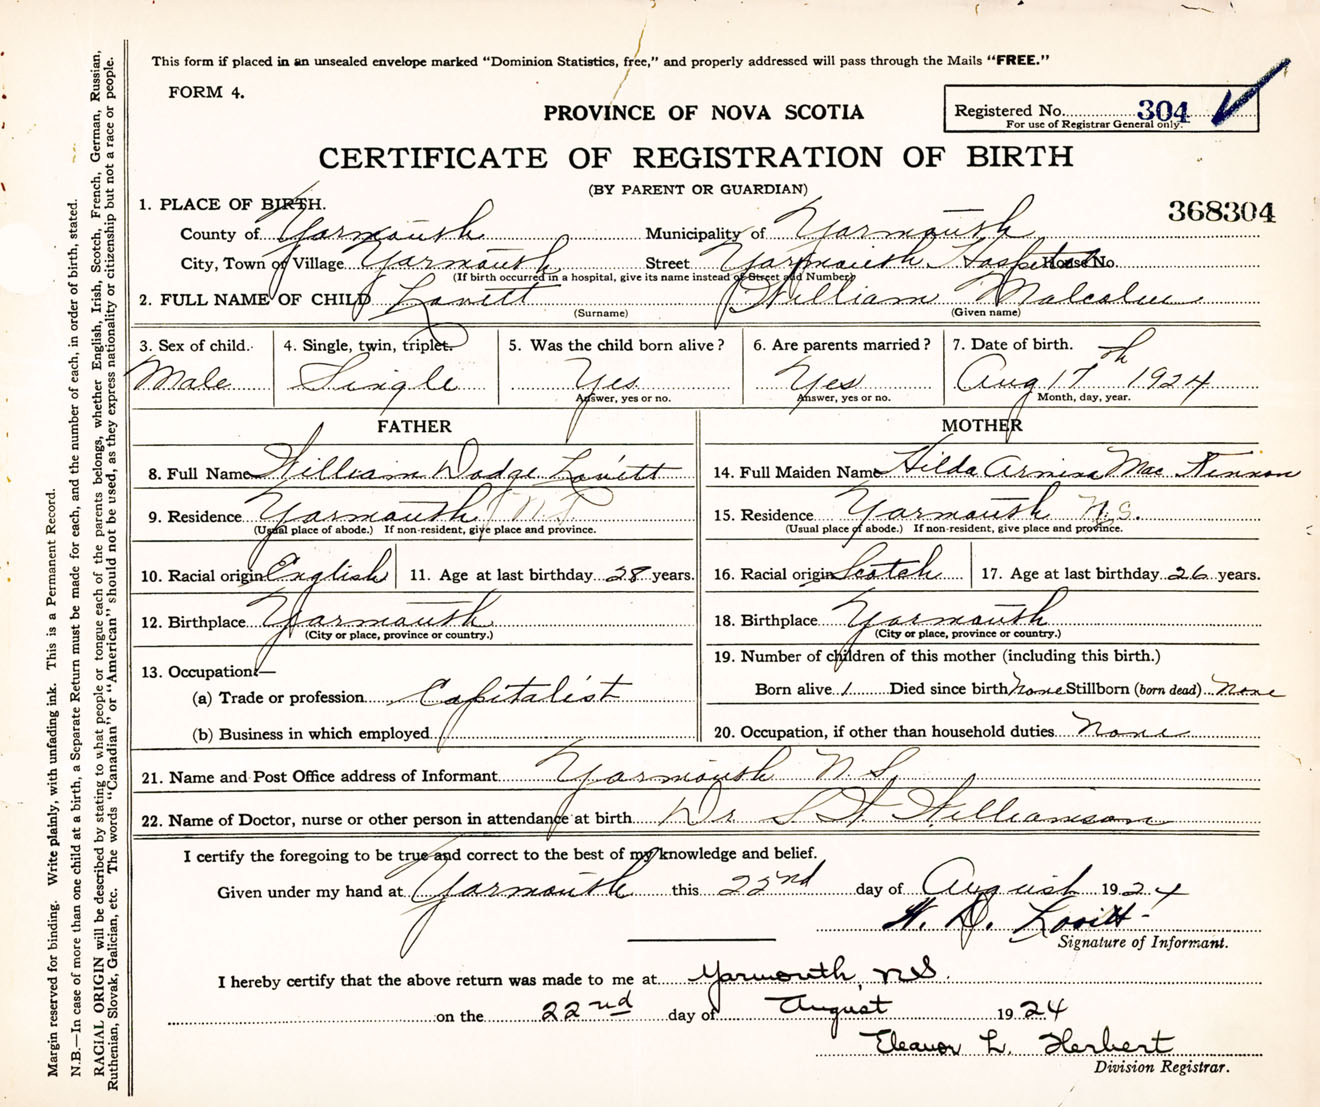 This form if placed in an unsealed envelope marked "Dominion Statistics, free," and properly addressed will pass through the Mails "FREE."
FORM 4.
PROVINCE OF NOVA SCOTIA
Registered No. 304
For use of Registrar General only.
CERTIFICATE OF REGISTRATION OF BIRTH
(BY PARENT OR GUARDIAN)
368304
1. PLACE OF BIRTH.
County of Yarmouth Municipality of Yarmouth
City, Town or Village Yarmouth Street Yarmouth Hospital House No.
(If birth occurred in a hospital, give its name instead of Street and Number)
2. FULL NAME OF CHILD Lovitt William Malcolm
(Surname) (Given name)
3. Sex of child. 4. Single, twin, triplet. 5. Was the child born alive? 6. Are parents married? 7. Date of birth.
Male Single Yes Yes Aug 17th 1924
Answer, yes or no. Answer, yes or no. Month, day, year.
FATHER MOTHER
8. Full Name William Dodge Lovitt 14. Full Maiden Name Hilda Armina Mac Kinnon
9. Residence Yarmouth N S 15. Residence Yarmouth N.S.
(Usual place of abode.) If non-resident, give place and province. (Usual place of abode.) If non-resident, give place and province.
10. Racial origin English 11. Age at last birthday 28 years. 16. Racial origin Scotch 17. Age at last birthday 26 years.
12. Birthplace Yarmouth 18. Birthplace Yarmouth
(City or place, province or country.) (City or place, province or country.)
13. Occupation— 19. Number of children of this mother (including this birth.)
(a) Trade or profession Capitalist Born alive 1 Died since birth None Stillborn (born dead) None
(b) Business in which employed 20. Occupation, if other than household duties None
21. Name and Post Office address of Informant Yarmouth N S
22. Name of Doctor, nurse or other person in attendance at birth Dr S W Williamson
I certify the foregoing to be true and correct to the best of my knowledge and belief.
Given under my hand at Yarmouth this 22nd day of August 1924
W. D. Lovitt
Signature of Informant.
I hereby certify that the above return was made to me at Yarmouth, NS.
on the 22nd day of August 1924
Eleanor L. Herbert
Division Registrar.
Margin reserved for binding. Write plainly, with unfading ink. This is a Permanent Record.
N.B.—In case of more than one child at a birth, a Separate Return must be made for each, and the number of each, in order of birth, stated.
RACIAL ORIGIN will be described by stating to what people or tongue each of the parents belongs, whether English, Irish, Scotch, French, German, Russian,
Ruthenian, Slovak, Galician, etc. The words "Canadian" or "American" should not be used, as they express nationality or citizenship but not a race or people.